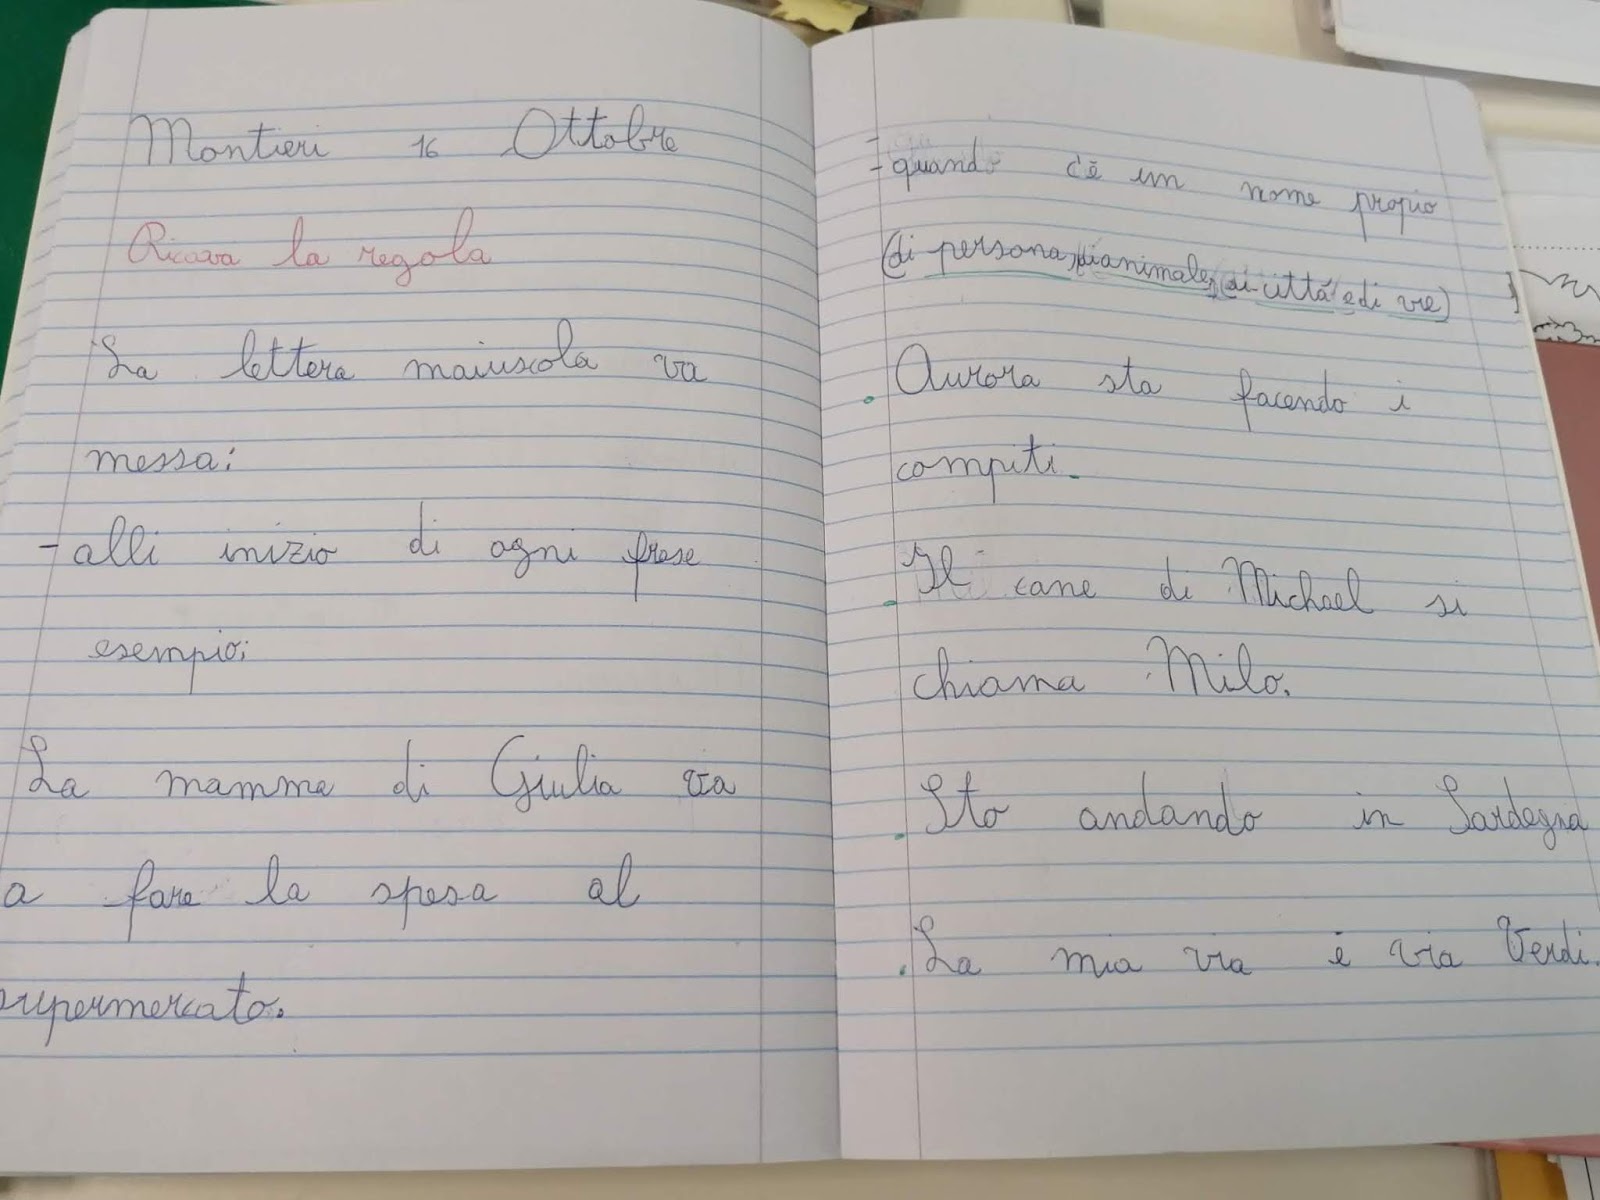 Montieri 16 Ottobre
Ricava la regola
La lettera maiuscola va
messa:
- alli inizio di ogni frase
esempio:
La mamma di Giulia va
a fare la spesa al
supermercato.
- quando c'è un nome propio
(di persona, di animale, di città e di vie)
Aurora sta facendo i
compiti.
Il cane di Michael si
chiama Milo.
Sto andando in Sardegna
La mia via è via Verdi.